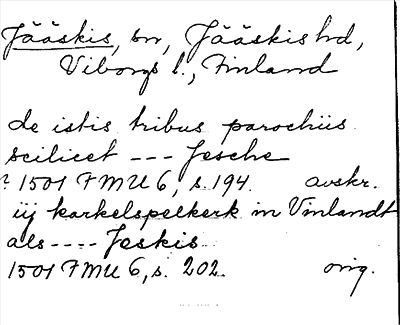 Jääskis, sn, Jääskis hd,
Viborgs l., Finland
de istis tribus parochiis
scilicet --- Jesche
? 1501 FMU 6, s. 194. avskr.
iij karkelspelkerk in Vinlandt
als ---- Jeskis
1501 FMU 6, s. 202. orig.